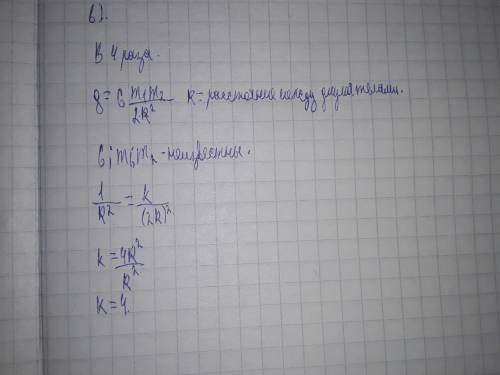 6).
В 4 раза.
g = G m₁m₂ / 2R² R = расстояние между двумя телами.
G; m₁ m₂ - неизвестны.
1 / R² = k / (2R)²
k = 4R² / R²
k = 4.